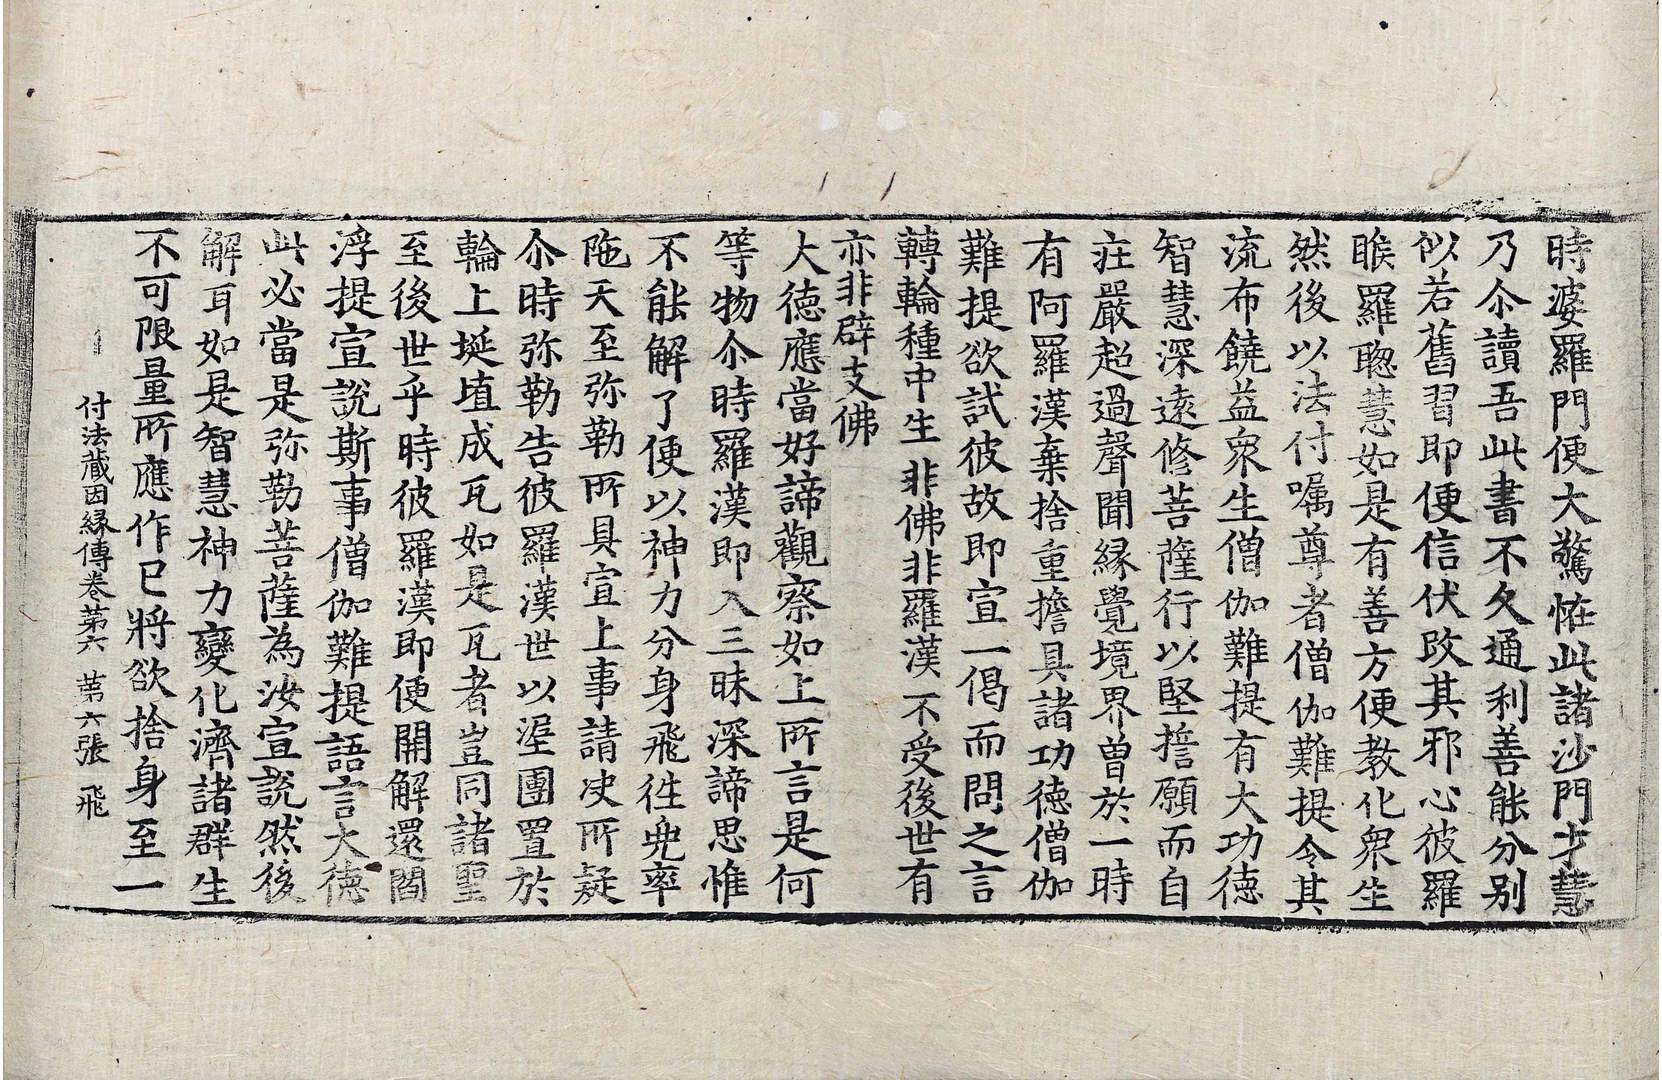 時婆羅門便大驚恠此諸沙門才慧
乃尒讀吾此書不久通利善能分別
似若舊習即便信伏改其邪心彼羅
睺羅聦慧如是有善方便教化衆生
然後以法付嘱尊者僧伽難提令其
流布饒益衆生僧伽難提有大功徳
智慧深遠修菩薩行以堅誓願而自
莊嚴超過聲聞縁覺境界曽於一時
有阿羅漢棄捨重擔具諸功徳僧伽
難提欲試彼故即宣一偈而問之言
轉輪種中生 非佛非羅漢 不受後世有
亦非辟支佛
大徳應當好諦觀察如上所言是何
等物尒時羅漢即入三昧深諦思惟
不能解了便以神力分身飛徃兜率
陁天至弥勒所具宣上事請决所疑
尒時弥勒告彼羅漢世以埿團置於
輪上埏埴成瓦如是瓦者豈同諸聖
至後世乎時彼羅漢即便開解還閻
浮提宣說斯事僧伽難提語言大徳
此必當是弥勒菩薩為汝宣說然後
解耳如是智慧神力變化濟諸群生
不可限量所應作已將欲捨身至一
付法藏因縁傳卷第六 第六張 飛